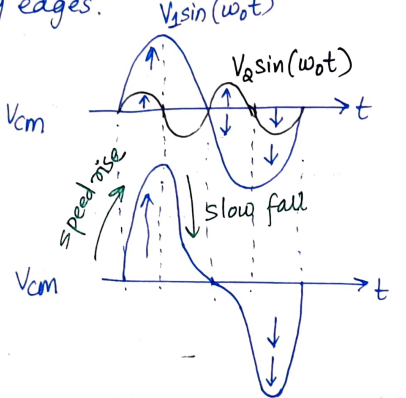 edges.
V₁sin(ω₀t)
V₂sin(ω₀t)
Vcm
t
speed rise
slow fall
Vcm
t